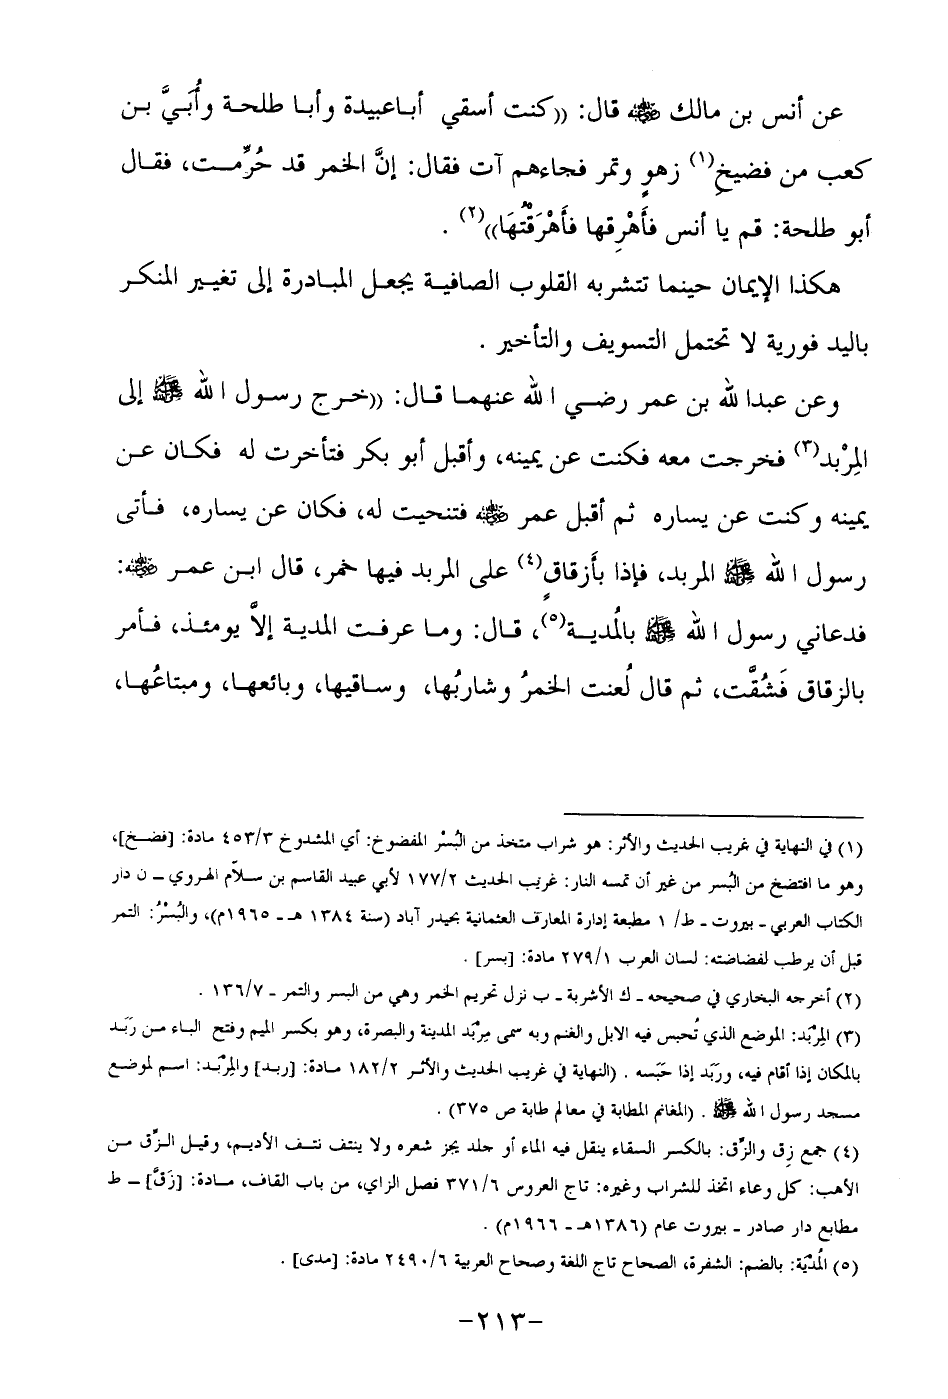 عن أنس بن مالك ﷺ قال: ((كنت أسقي أباعبيدة وأبا طلحة وأُبَيَّ بن
كعب من فضيخِ(١) زهوٍ وتمر فجاءهم آت فقال: إنَّ الخمر قد حُرِّمت، فقال
أبو طلحة: قم يا أنس فأَهْرِقها فأَهْرَقْتُهَا))(٢) .
هكذا الإيمان حينما تتشربه القلوب الصافية يجعل المبادرة إلى تغيير المنكر
باليد فورية لا تحتمل التسويف والتأخير .
وعن عبدا لله بن عمر رضي ا لله عنهما قال: ((خرج رسول ا لله ﷺ إلى
المِرْبد(٣) فخرجت معه فكنت عن يمينه، وأقبل أبو بكر فتأخرت له فكان عن
يمينه وكنت عن يساره ثم أقبل عمر رضي الله عنه فتنحيت له، فكان عن يساره، فأتى
رسول ا لله ﷺ المربد، فإذا بأَزقاقٍ(٤) على المربد فيها خمر، قال ابن عمر رضي الله عنه:
فدعاني رسول ا لله ﷺ بالمُدية(٥)، قال: وما عرفت المدية إلاَّ يومئذ، فأمر
بالزقاق فَشُقَّت، ثم قال لُعنت الخمرُ وشاربُها، وساقيها، وبائعها، ومبتاعُها،
(١) في النهاية في غريب الحديث والأثر: هو شراب متخذ من البُسْر المفضوخ: أي المشدوخ ٤٥٣/٣ مادة: [فضخ]،
وهو ما افتضخ من البُسر من غير أن تمسه النار: غريب الحديث ١٧٧/٢ لأبي عبيد القاسم بن سلاّم الهروي - ن دار
الكتاب العربي - بيروت - ط/ ١ مطبعة إدارة المعارف العثمانية بحيدر آباد (سنة ١٣٨٤ هـ - ١٩٦٥م)، والبُسْرُ: التمر
قبل أن يرطب لفضاضته: لسان العرب ٢٧٩/١ مادة: [بسر] .
(٢) أخرجه البخاري في صحيحه - ك الأشربة - ب نزل تحريم الخمر وهي من البسر والتمر - ١٣٦/٧ .
(٣) المِرْبَد: الموضع الذي تُحبس فيه الابل والغنم وبه سمى مِرْبَد المدينة والبصرة، وهو بكسر الميم وفتح الباء من رَبَد
بالمكان إذا أقام فيه، ورَبَد إذا حَبَسه . (النهاية في غريب الحديث والأثر ١٨٢/٢ مادة: [ربد] والمِرْبَد: اسم لموضع
مسجد رسول ا لله ﷺ . (المغانم المطابة في معالم طابة ص ٣٧٥) .
(٤) جمع زِق والزِّق: بالكسر السقاء ينقل فيه الماء أو جلد يجز شعره ولا ينتف نتف الأديم، وقيل الزِّق من
الأهب: كل وعاء اتخذ للشراب وغيره: تاج العروس ٣٧١/٦ فصل الزاي، من باب القاف، مادة: [زَقَّ] - ط
مطابع دار صادر - بيروت عام (١٣٨٦هـ - ١٩٦٦م) .
(٥) المُدْيَة: بالضم: الشفرة، الصحاح تاج اللغة وصحاح العربية ٢٤٩٠/٦ مادة: [مدى] .
-٢١٣-